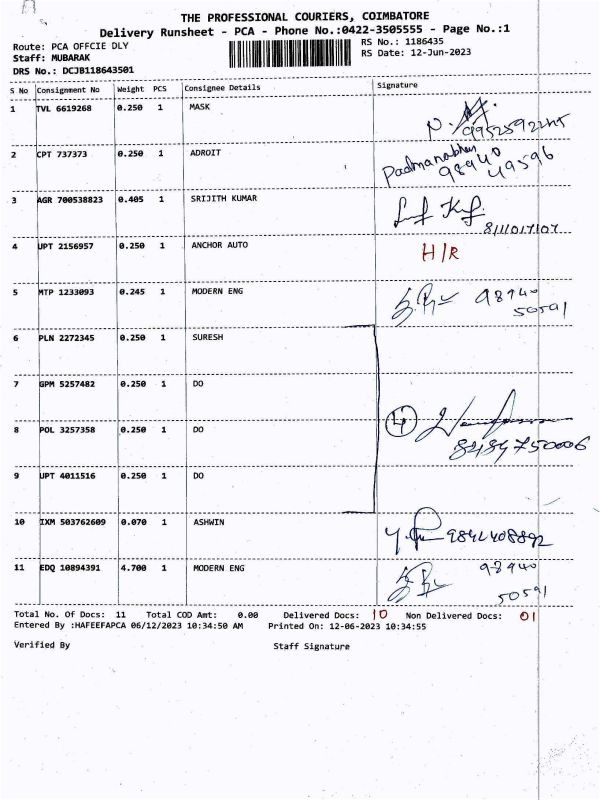 THE PROFESSIONAL COURIERS, COIMBATORE
Delivery Runsheet - PCA - Phone No.:0422-3505555 - Page No.:1
Route: PCA OFFCIE DLY
RS No.: 1186435
Staff: MUBARAK
RS Date: 12-Jun-2023
DRS No.: DCJB118643501
S No Consignment No Weight PCS Consignee Details Signature
1 TVL 6619268 0.250 1 MASK
2 CPT 737373 0.250 1 ADROIT
Padmanabhan
98940
49596
3 AGR 700538823 0.405 1 SRIJITH KUMAR
8111017107
4 UPT 2156957 0.250 1 ANCHOR AUTO H/R
5 MTP 1233093 0.245 1 MODERN ENG 98940
50591
6 PLN 2272345 0.250 1 SURESH
7 GPM 5257482 0.250 1 DO
8 POL 3257358 0.250 1 DO 4
9 UPT 4011516 0.250 1 DO
10 IXM 503762609 0.070 1 ASHWIN
11 EDQ 10894391 4.700 1 MODERN ENG 98940
50591
Total No. Of Docs: 11 Total COD Amt: 0.00 Delivered Docs: 10 Non Delivered Docs: 01
Entered By :HAFEEFAPCA 06/12/2023 10:34:50 AM Printed On: 12-06-2023 10:34:55
Verified By Staff Signature